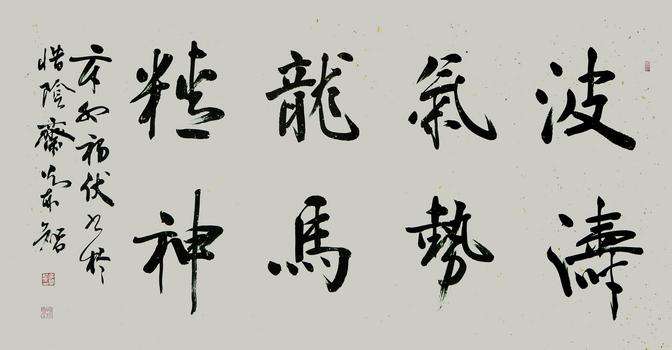 波濤
氣勢
龍馬
精神
辛卯初伏書於
惜陰齋